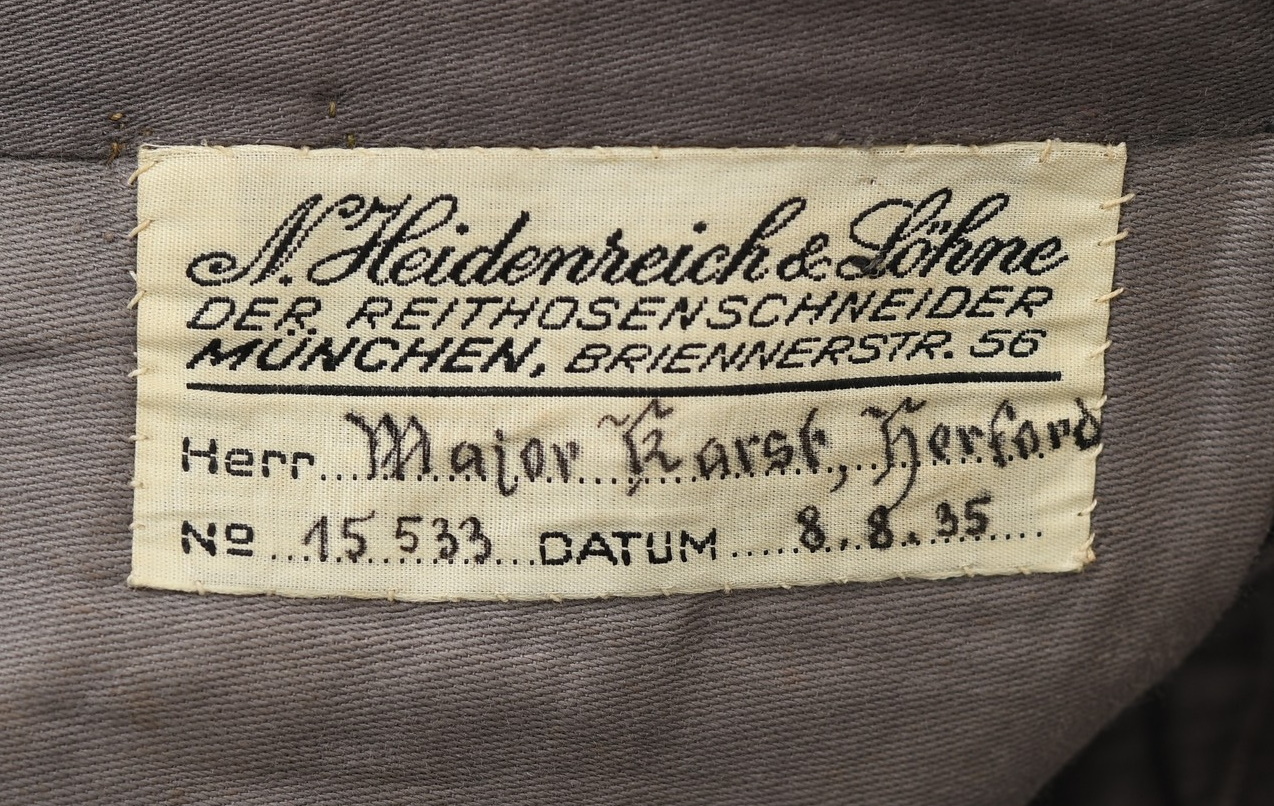 N. Heidenreich & Söhne
DER REITHOSENSCHNEIDER
MÜNCHEN, BRIENNERSTR. 56
Herr Major Karst, Herford
Nº 15533 DATUM 8.8.35